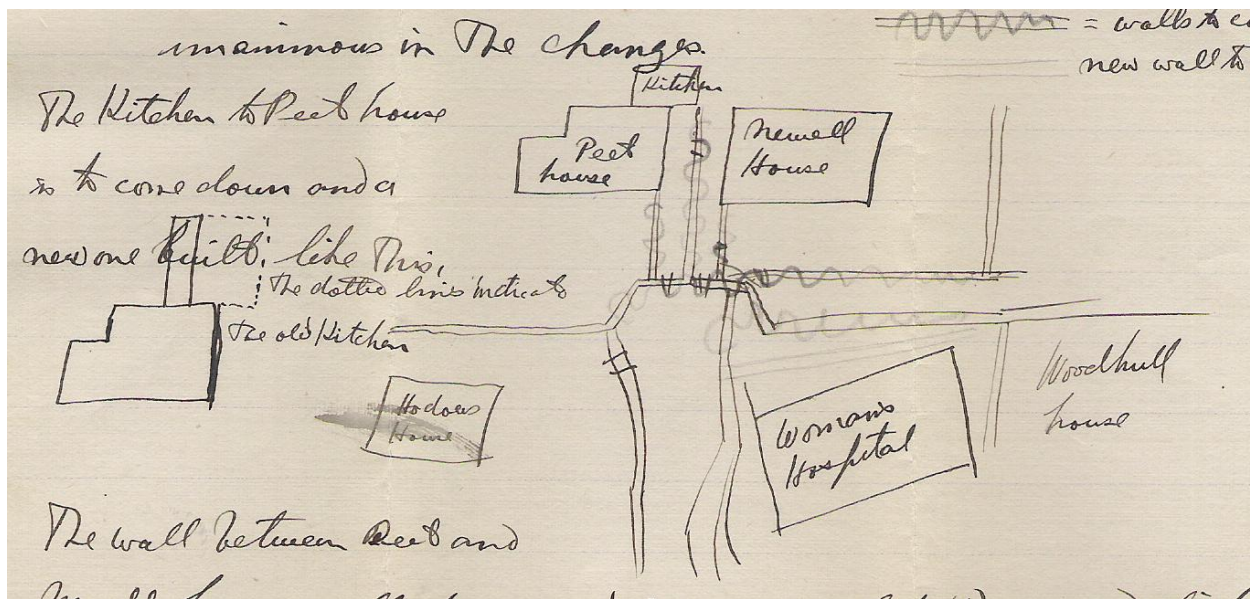 unanimous in The changes.
= walls to
new wall to
The Kitchen to Peet house
is to come down and a
new one built, like This,
The dotted lines indicate
The old Kitchen
Kitchen
Peet
house
Newell
House
Hodous
House
Womans
Hospital
Woodhull
house
The wall between Peet and